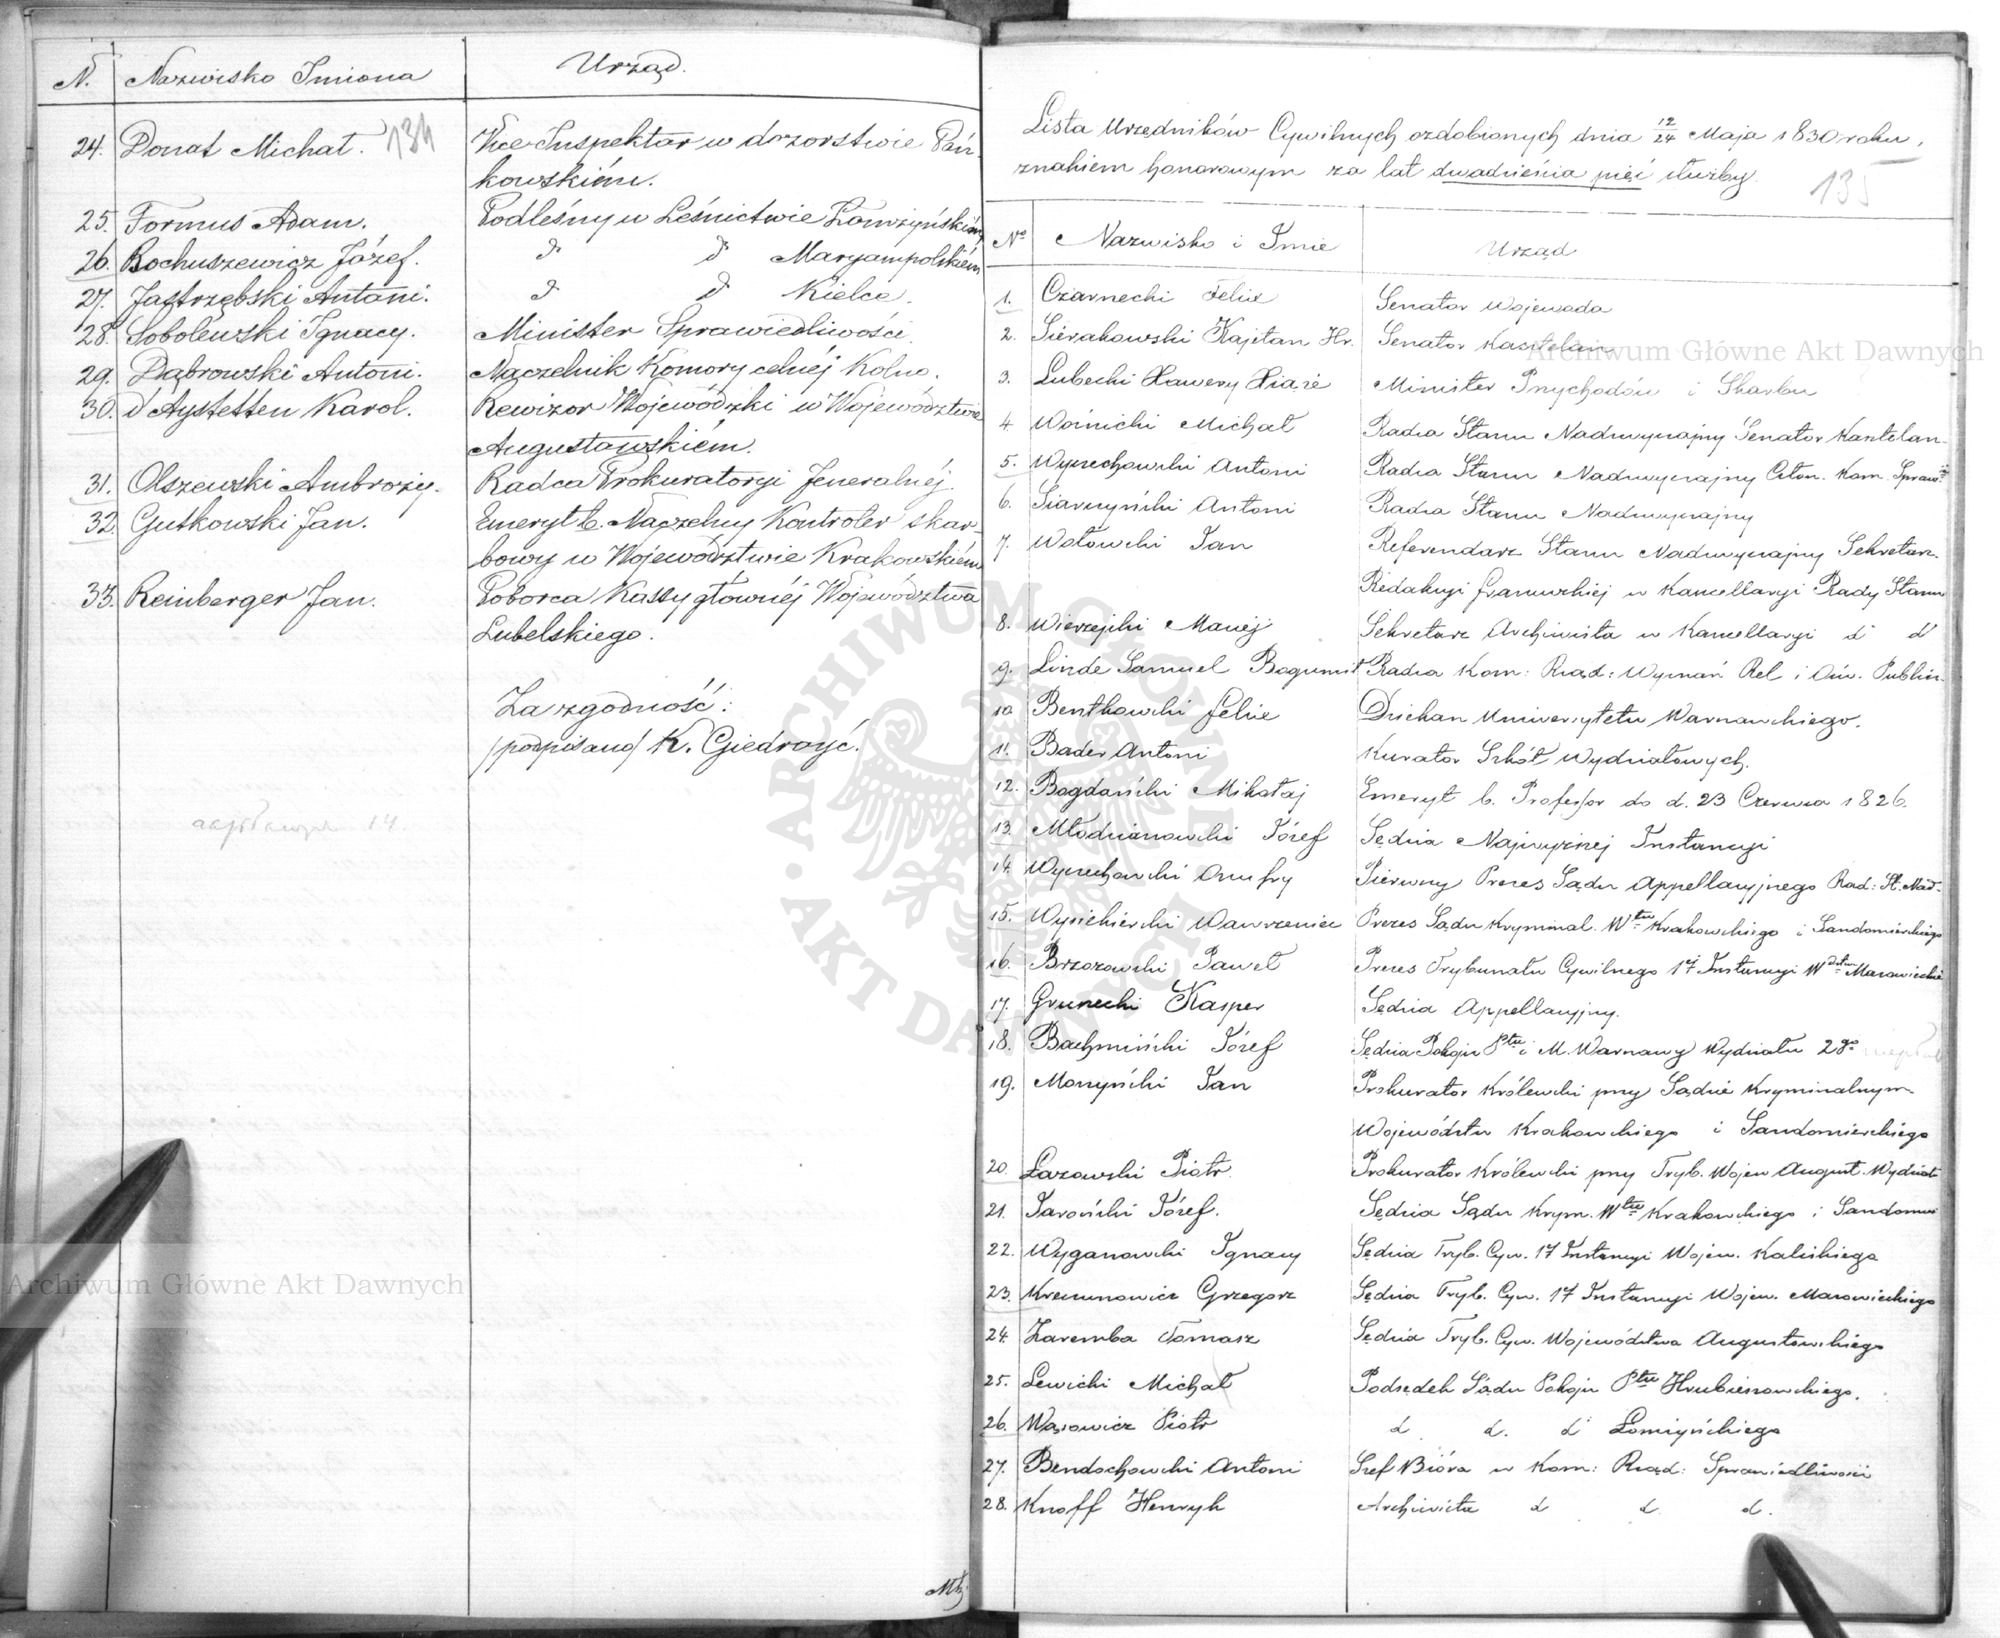 N. Nazwisko Imiona Urząd.
134
24. Donat Michał. Vice Inspektor w dozorstwie Pań-
kowskiém.
25. Formus Adam. Podleśny w Leśnictwie Łomżyńskiém
26. Bochuszewicz Józef. d° d° Maryampolskiém
27. Jastrzębski Antoni. d° d° Kielce.
28. Sobolewski Ignacy. Minister Sprawiedliwości.
29. Dąbrowski Antoni. Naczelnik Komory celnéj Kolno.
30. d'Aystetten Karol. Rewizor Wojewódzki w Województwie
Augustowskiém.
31. Olszewski Ambroży. Radca Prokuratoryi Jeneralnéj.
32. Gutkowski Jan. Emeryt b. Naczelny Kontroler skar-
bowy w Województwie Krakowskiém
33. Reinberger Jan. Poborca Kassy głównéj Województwa
Lubelskiego.
Za zgodność:
/podpisano/ K. Giedroyć.
14.
Lista Urzędników Cywilnych ozdobionych dnia 12/24 Maja 1830 roku,
znakiem honorowym za lat dwadzieścia pięć służby.
135
N° Nazwisko i Imie Urząd
1. Czarnecki Felix Senator Wojewoda
2. Sierakowski Kajetan Hr. Senator Kasztelan
3. Lubecki Xawery Xiąże Minister Przychodów i Skarbu
4 Woźnicki Michał Radca Stanu Nadzwyczajny Senator Kasztelan-
5. Wyczechowski Antoni Radca Stanu Nadzwyczajny Człon. Kom. Spraw.
6. Siarczyński Antoni Radca Stanu Nadzwyczajny
7. Wołowski Jan Referendarz Stanu Nadzwyczajny Sekretarz.
Redakcyi francuzkiej w Kancellaryi Rady Stanu
8. Wierzejski Maciej Sekretarz Archiwista w Kancellaryi d d
9. Linde Samuel Bogumił Radca Kom: Rząd: Wyznań Rel i Ośw. Public.
10 Bentkowski Felix Dziekan Uniwersytetu Warszawskiego.
11. Bader Antoni Kurator Szkół Wydziałowych.
12. Bogdański Mikołaj Emeryt b. Professor do d. 23 Czerwca 1826.
13. Młodzianowski Józef Sędzia Najwyższej Instancyi
14. Wyczechowski Onufry Pierwszy Prezes Sądu Appellacyjnego Rad: St. Nad-
15. Wysiekierski Wawrzeniec Prezes Sądu Kryminal. Wtw Krakowskiego i Sandomierskiego
16. Brzozowski Paweł Prezes Trybunału Cywilnego 1éj Instancyi Wdztwa Mazowieckie
17. Grunecki Kasper Sędzia Appellacyjny.
18. Bachmiński Józef Sędzia Pokoju Ptu i M. Warszawy Wydziału 2go
19. Monyński Jan Prokurator Królewski przy Sądzie Kryminalnym.
Województw Krakowskiego i Sandomierskiego
20. Łazowski Piotr Prokurator Królewski przy Tryb. Wojew August. Wydział
21. Jaroński Józef. Sędzia Sądu Krym. Wtw Krakowskiego i Sandomier
22. Wyganowski Ignacy Sędzia Tryb. Cyw. 1éj Instancyi Wojew. Kaliskiego
23. Krzeczunowicz Grzegorz Sędzia Tryb. Cyw. 1éj Instancyi Wojew. Mazowieckiego
24. Zaremba Tomasz Sędzia Tryb. Cyw. Województwa Augustowskiego
25. Lewicki Michał Podsędek Sądu Pokoju Ptu Hrubieszowskiego.
26. Wąsowicz Piotr d d. d Łomżyńskiego
27. Bendochowski Antoni Szef Bióra w Kom: Rząd: Sprawiedliwości
28. Knoff Henryk Archiwista d d d.
Archiwum Główne Akt Dawnych
Archiwum Główne Akt Dawnych
ARCHIWUM GŁÓWNE • AKT DAWNYCH •